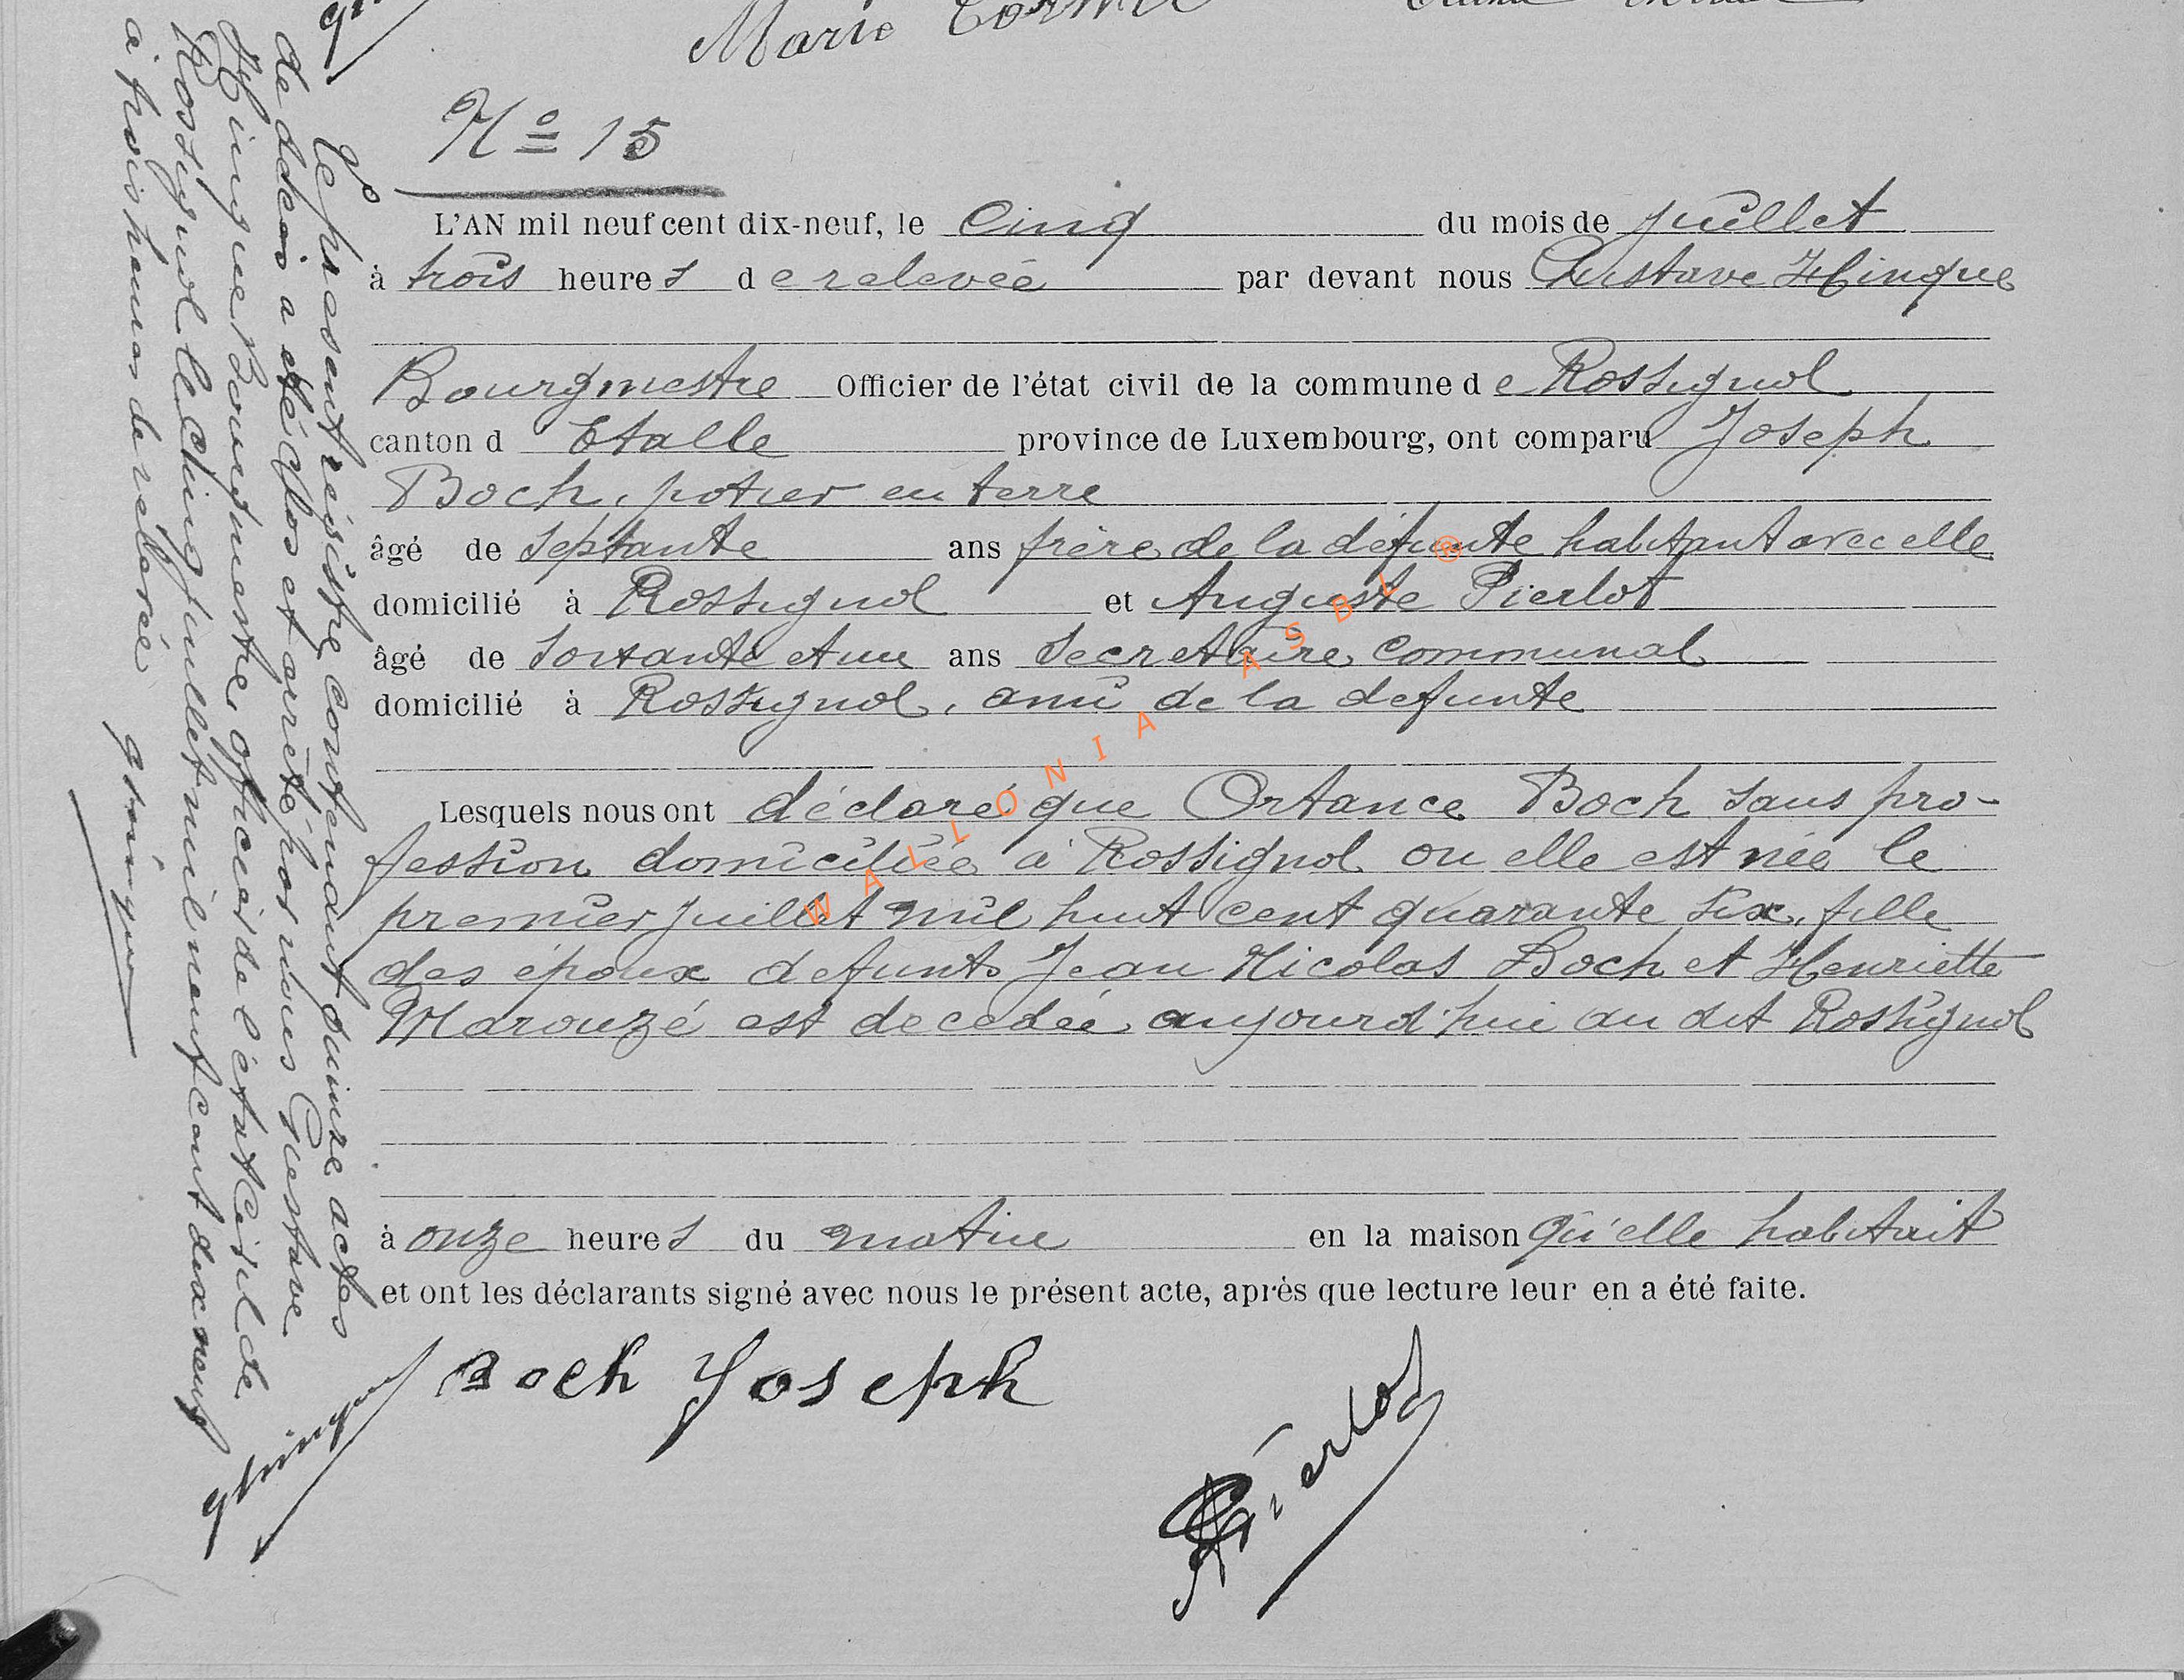 Marie
Nº 15
L'AN mil neuf cent dix-neuf, le Cinq du mois de juillet
à trois heures de relevée par devant nous Gustave Hinque
Bourgmestre Officier de l'état civil de la commune de Rossignol
canton d Etalle province de Luxembourg, ont comparu Joseph
Boch, potier en terre
âgé de septante ans frère de la défunte habitant avec elle
domicilié à Rossignol et Auguste Pierlot
âgé de soixante et un ans Secretaire Communal
domicilié à Rossignol, ami de la defunte
Lesquels nous ont déclaré que Ortance Boch sans pro-
fession domiciliée à Rossignol ou elle est née le
premier juillet mil huit cent quarante six, fille
des époux defunts Jean Nicolas Boch et Henriette
Marouzé est decedée aujourd'hui au dit Rossignol
à onze heures du matin en la maison qu'elle habitait
et ont les déclarants signé avec nous le présent acte, après que lecture leur en a été faite.
Boch Joseph
Pierlot
ghinque
Le présent régistre contenant quinze actes
de décès a été clos et arrêté par nous Gustave
Hinque Bourgmestre, officier de l'état Civil de
Rossignol le cinq juillet mil neuf cent dix neuf
à trois heures de relevée
ghinque
WALLONIA ASBL ®